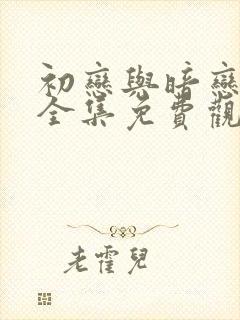 初戀與暗戀
全集免費觀
老霍兒